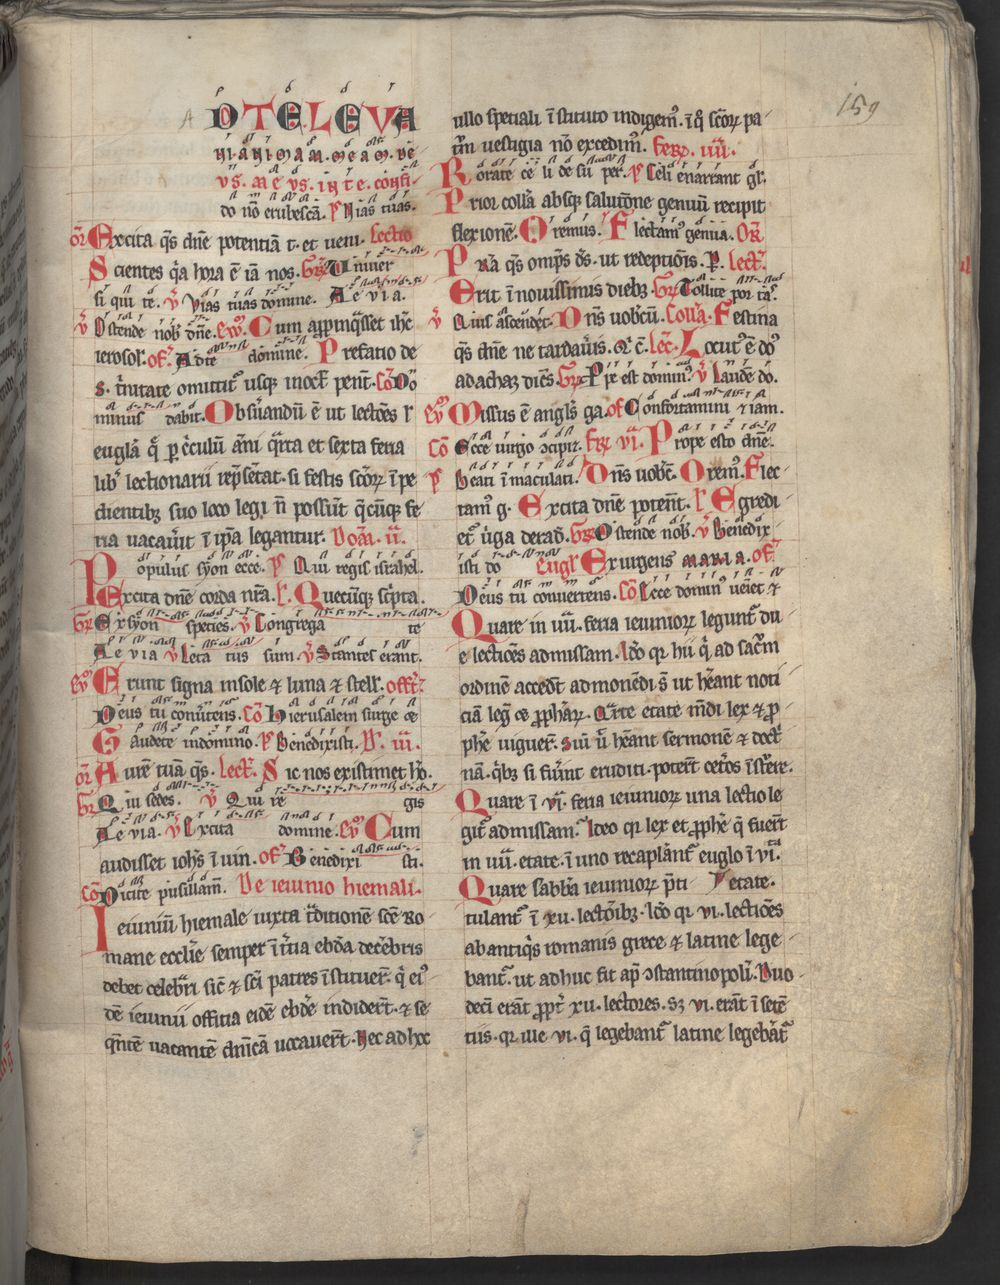 159
A D TE LEVA
VI ANIMAM MEAM. DE
VS. MEVS. IN TE. confi-
do nō erubescā. P̄ Vias tuas.
or̄ Excita q̄s dn̄e potentiā t. et ueni. Lectio
Scientes q̄a hora ē iā nos. Gr̄ Uniuer
si qui te. V̄ Vias tuas domine. Aeuia.
V̄ Ostende nob̄ dn̄e. ev̄ Cum appinq̄sset ih̄c
ierosol. of̄ Ad te domine. Prefatio de
s. t̄nitate omittit̄ usq; in oct̄ pent̄. Cō Do
minus dabit. Obseruandū ē ut lectōes ł
eu͞gła q̄ p c̄culū ānī q̄rta et sexta feria
lib̄ lectionarii rep̄sētat. si festis sc̄oꝝ ī pe
dientib; suo loco legi n̄ possūt q̄cūq; fe
ria uacauīt ī ip̄a legantur. Dom̄. ii.
Populus syon ecce. P̄ Qui regis israhel.
Excita dn̄e corda nr̄a. ł. Quecūq; sc̄pta.
Gr̄ Ex syon species. V̄ Congrega te
Aeuia V̄ Leta tus sum V̄ Stantes erant.
ev̄ Erunt signa in sole ⁊ luna ⁊ stell. offr̄
Deus tu conūtens. Cō Hierusalem surge
Gaudete in domino. P̄ Benedixisti. D̄. iii.
or̄ Aurē tuā q̄s. Lect̄. Sic nos existimet ho.
Gr̄ Qui sedes. V̄ Qui re gis
Aeuia. V̄ Excita domine. ev̄ Cum
audisset ioh̄s ī uin. of̄ Benedixi sti.
Cō Dicite pusillam̄. De ieiunio hiemali.
Ieiuniū hiemale iuxta t̄ditionē sc̄e Ro
mane eccl̄ie semper ī t̄tia ebd̄a decēbris
debet celebrari sic̄ ⁊ sc̄i patres īstituer̄. q̄ ei⁹
dē ieiunii offitia eidē ebd̄e indidert̄. ⁊ se
q̄ntē uacantē dn̄icā uocauert̄. Nec ad hoc
ullo spetiali īstituto indigem⁹. ī q̄ sc̄oꝝ pa
tr̄m uestigia nō excedim⁹. Fer̄. iiii.
Rorate celi desup̄ per. P̄ Celi enarrant gł.
Prior coll̄a absq; salutōne genuū recipit
flexionē. Oremus. Flectam⁹ genua. Or̄
Pr̄a q̄s omp̄s ds̄. ut redeptiōis. P̄. lect̄.
Erit ī nouissimis dieb;. Gr̄ Tollite portas.
V̄ Quis ascendet. Dn̄s uobcū. Coll̄a. Festina
q̄s dn̄e ne tardau̅is. Lēc. Locut⁹ ē do⁹
ad achaz dicēs. Gr̄ Pꝑe est domin⁹ V̄ Laudē do.
ev̄ Missus ē angl̄s ga. of̄ Confortamini ⁊ iam.
Cō Ecce uirgo ↄcipit̄. Fer̄ vi. Prope esto dn̄e.
P̄ Beati īmaculati. Dn̄s uobc̄. Orem⁹. Flec
tam⁹ g. Excita dn̄e potent̄. ł Egredi
et̄ uirga de rad̄. Gr̄ Ostende nob̄. V̄ Benedix
isti do eugł Exurgens MARIA. of̄
Deus tu conuertens. Cō Ecce domin⁹ ueiet ⁊
Quare in iiii. feria ieiunioꝝ legunt̄ du
e lectiōes ad missam. Idc̄o qr hii q̄ ad sac̄m
ordinē accedt̄ admonēdi s̄ ut h̄eant noti
ciā leḡ ⁊ ꝓpharꝝ. Qr̄te etate mūdi lex ⁊ ꝓ
phē uiguer̄. sui u̅ h̄eant sermonē ⁊ doct̄
nā. q̄b; si fūint eruditi. potert̄ cet̄os īst̄ere.
Quare ī vi. feria ieiunioꝝ una lectio le
git̄ ad missam. Ideo qr lex et ꝓphē q̄ fuer̄t
in iiii. etate. ī uno recaplant̄ eugło ī vi.
Quare sabb̄a ieiunioꝝ p̄ti etate.
tulant̄ ī xii. lectōib;. Idc̄o qr vi. lectiōes
ab antiq̄s romanis grece ⁊ latine lege
bant̄. ut adhuc fit ap̄ ↄstantinopoli. Duo
deci erāt ꝓpt̄ xii. lectores. s; vi. erāt ī setē
tiis. qr ille vi. q̄ legebant̄ latine legebāt̄